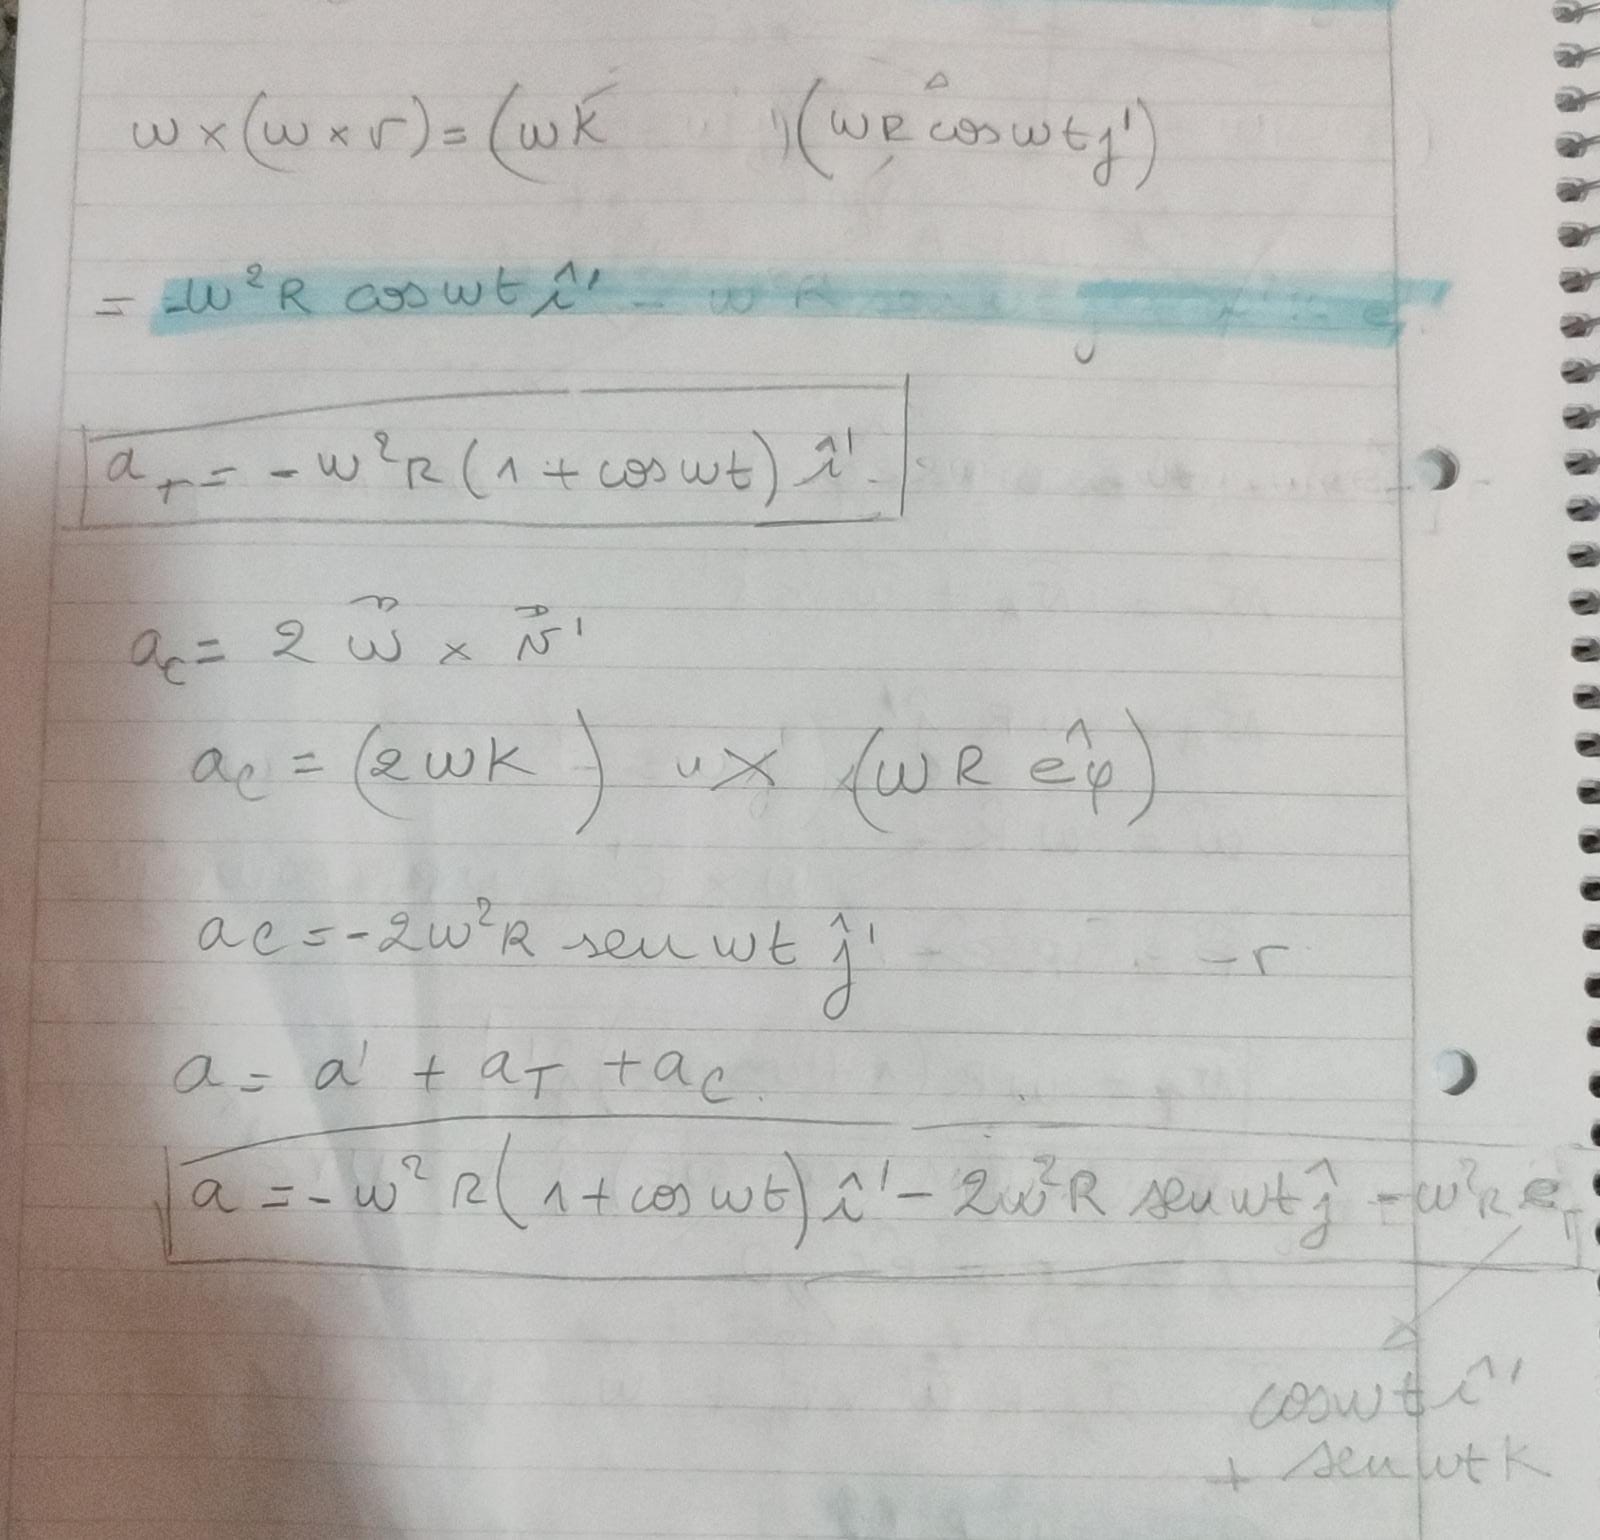 w × (w × r) = (wk̂ )(wR cos wt ĵ')
= -w²R cos wt î'
a_T = - w²R (1 + cos wt) î'.
a_c = 2 w⃗ × v⃗'
a_c = (2wk) × (wR ê_φ)
a_c = -2w²R sen wt ĵ' - r
a = a' + a_T + a_c.
a = - w²R (1 + cos wt) î' - 2w²R sen wt ĵ - w²R e_r
cos wt î'
+ sen wt k